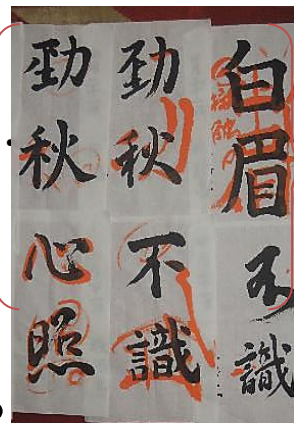 白眉
不識
勁秋
不識
勁秋
心照